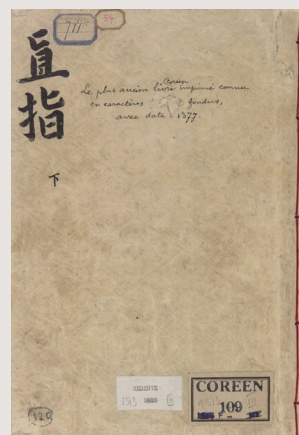 711
54
直指
下
Le plus ancien livre Coréen imprimé connu
en caractères fondus,
avec date : 1377.
COREEN
109